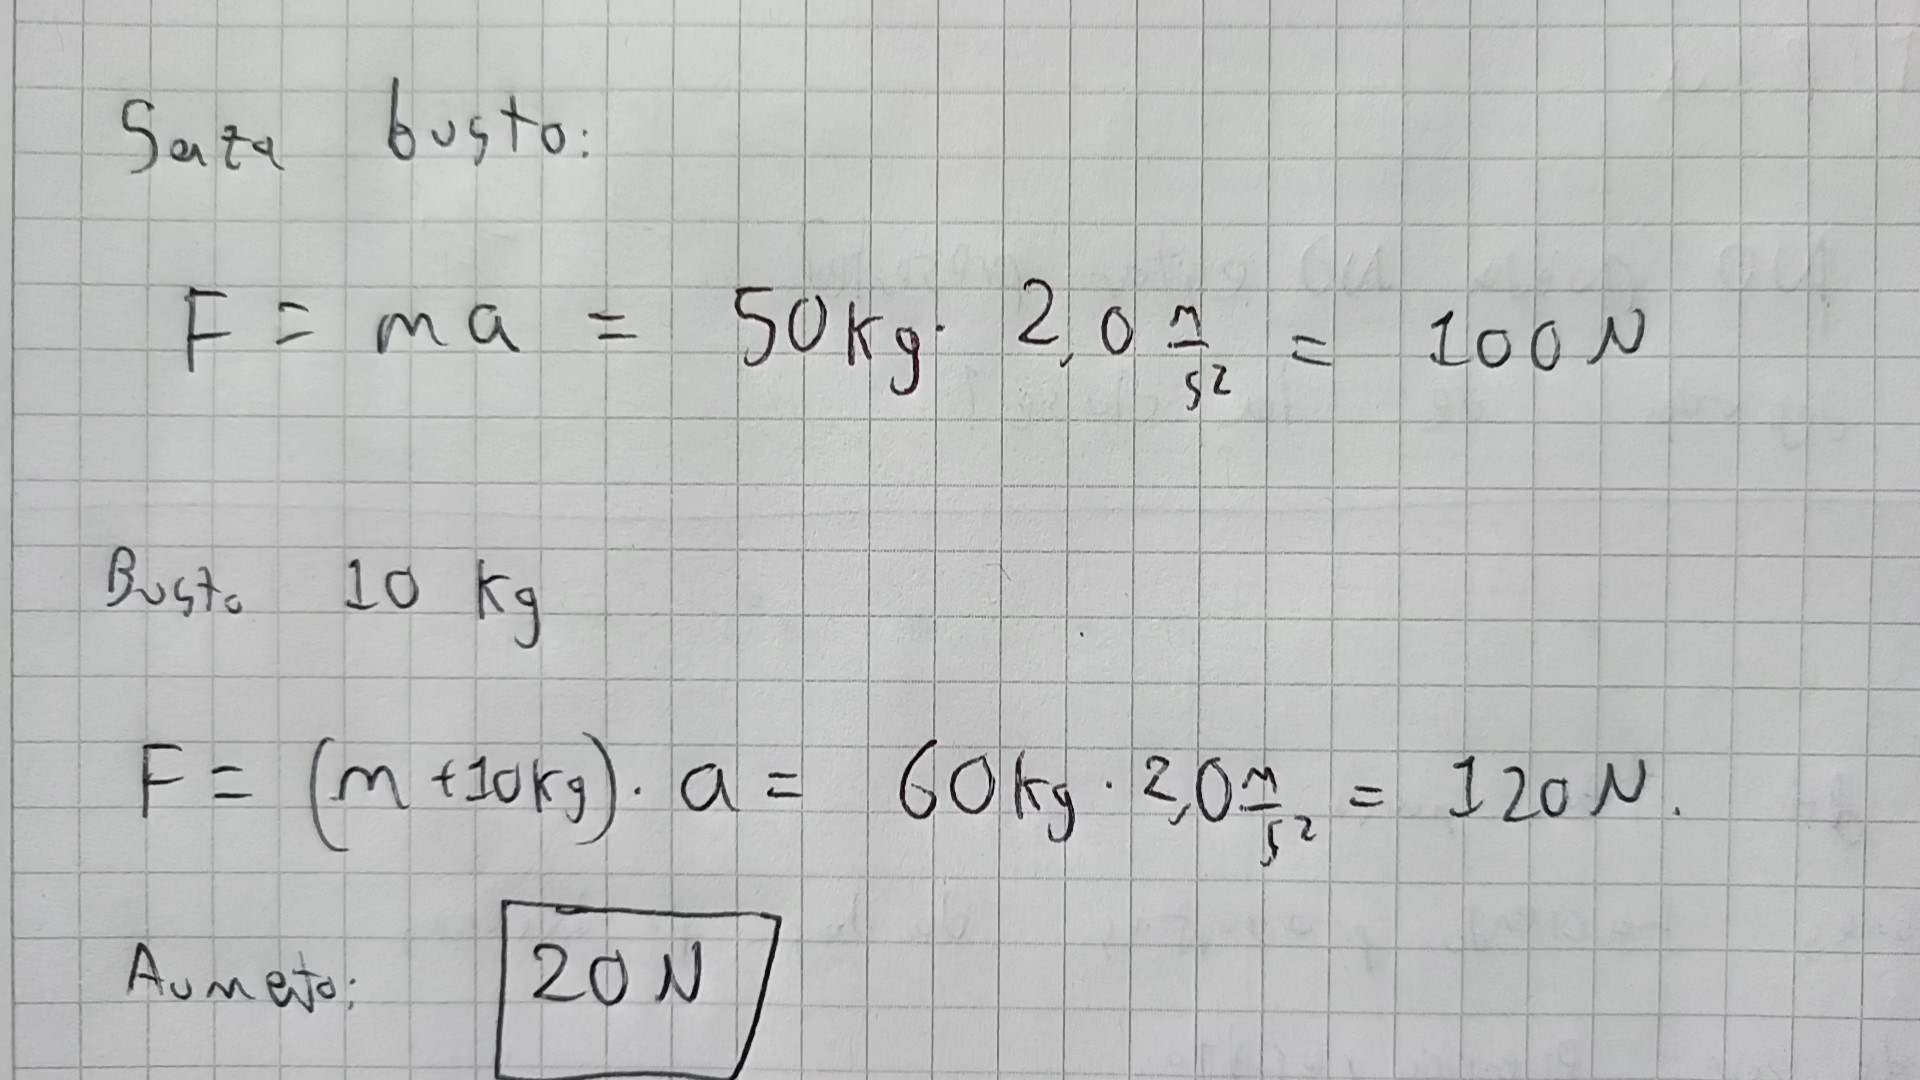 Senza busto:
F = ma = 50 kg · 2,0 m/s² = 100 N
Busto 10 kg
F = (m + 10 kg) · a = 60 kg · 2,0 m/s² = 120 N.
Aumento: 20 N